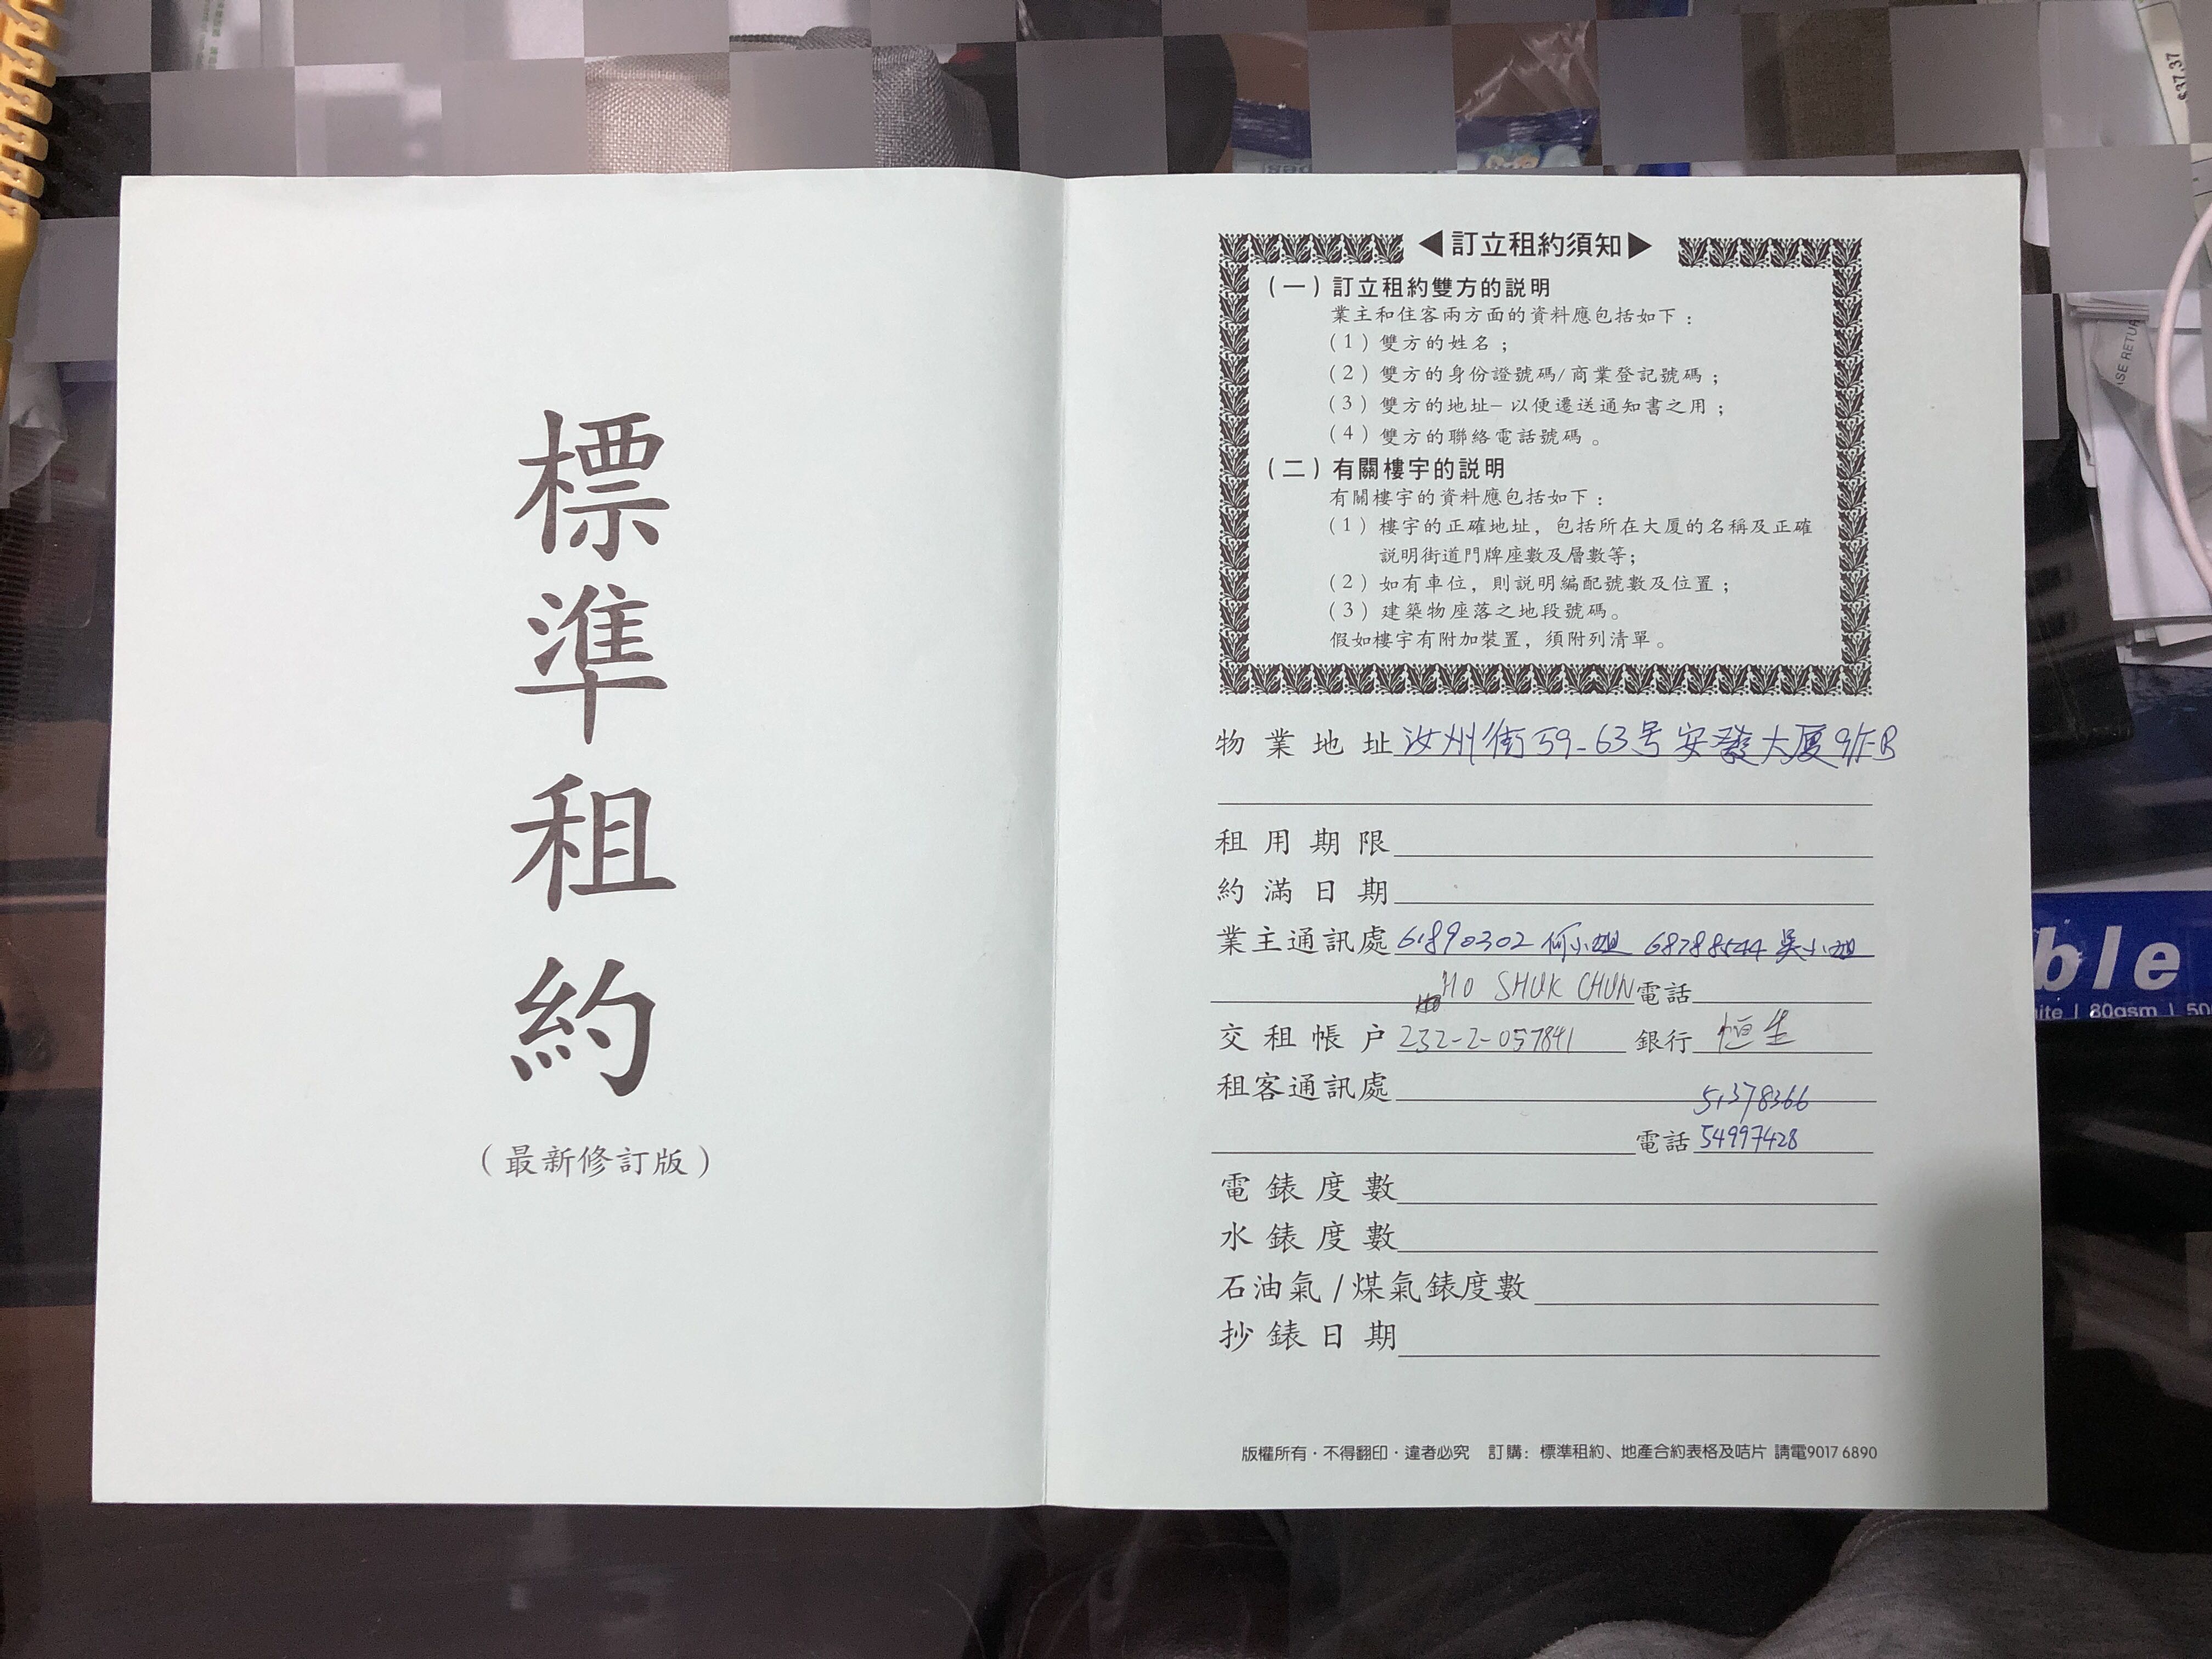 標準租約
（最新修訂版）
◀訂立租約須知▶
（一）訂立租約雙方的説明
業主和住客兩方面的資料應包括如下：
（1）雙方的姓名；
（2）雙方的身份證號碼/商業登記號碼；
（3）雙方的地址–以便遷送通知書之用；
（4）雙方的聯絡電話號碼。
（二）有關樓宇的説明
有關樓宇的資料應包括如下：
（1）樓宇的正確地址，包括所在大厦的名稱及正確
説明街道門牌座數及層數等；
（2）如有車位，則説明編配號數及位置；
（3）建築物座落之地段號碼。
假如樓宇有附加裝置，須附列清單。
物業地址 汝州街59-63号安發大厦9/F B
租用期限
約滿日期
業主通訊處 61890302 何小姐 68788544 吳小姐
HO SHUK CHUN 電話
交租帳户 232-2-057841 銀行 恒生
租客通訊處
51378366
電話 54997428
電錶度數
水錶度數
石油氣/煤氣錶度數
抄錶日期
版權所有·不得翻印·違者必究 訂購：標準租約、地產合約表格及咭片 請電9017 6890
$37.37
ASE RETUR
ble
ite | 80gsm | 50